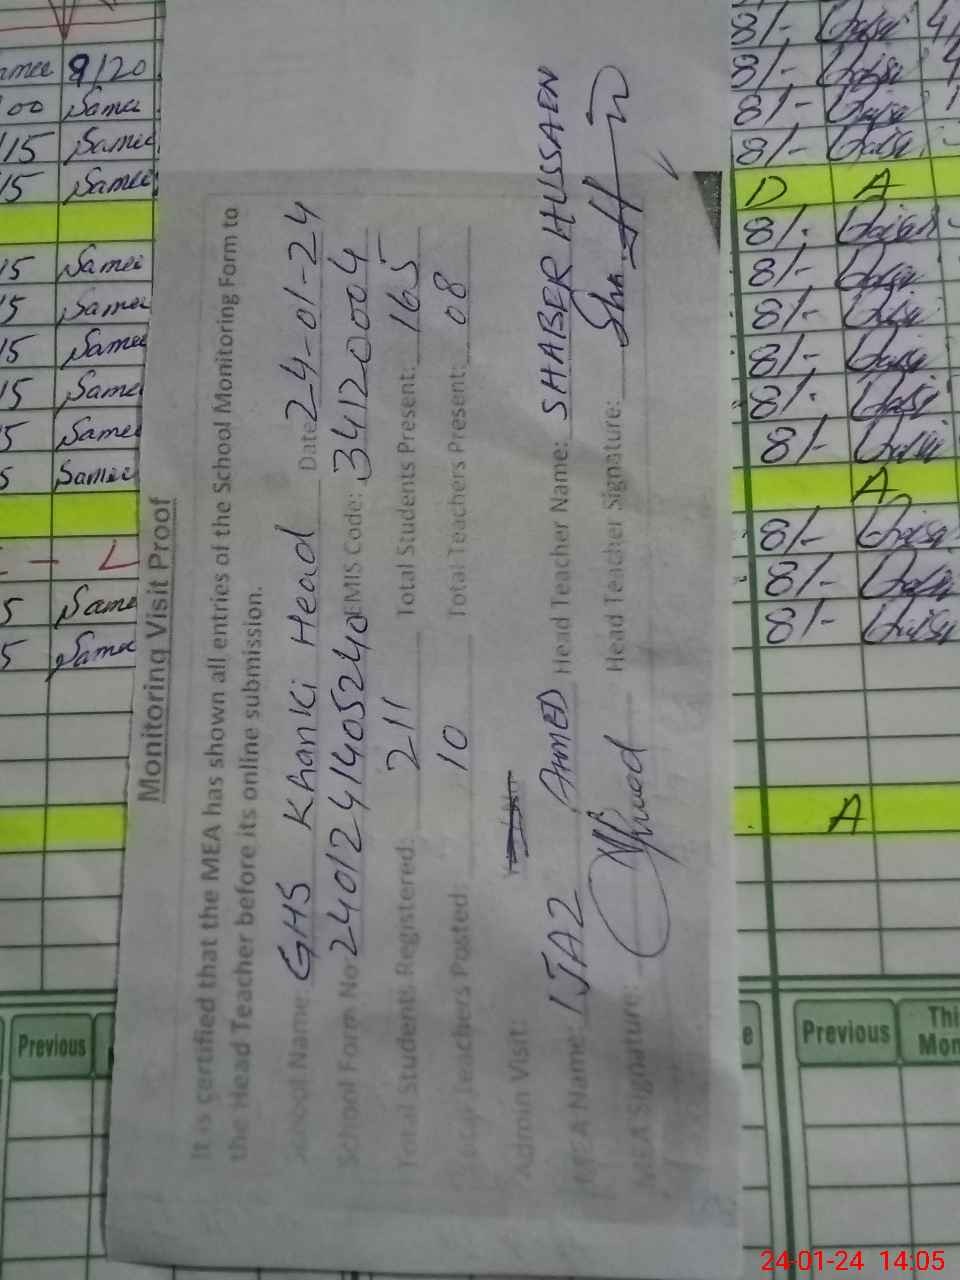 Monitoring Visit Proof
It is certified that the MEA has shown all entries of the School Monitoring Form to
the Head Teacher before its online submission.
School Name: GHS Khanki Head Date 24-01-24
School Form No 2401241405240 EMIS Code: 34120004
Total Students Registered: 211 Total Students Present: 165
Total Teachers Posted: 10 Total Teachers Present: 08
Admin Visit:
MEA Name: IJAZ AHMED Head Teacher Name: SHABER HUSSAEN
MEA Signature: Head Teacher Signature:
9/20
00 Samee
15 Samee
15 Samee
15 Samee
15 Samee
15 Samee
15 Samee
5 Samee
5 Samee
L
5 Same
5 Samee
Previous
8/-
8/-
8/-
8/-
D A
8/-
8/-
8/-
8/-
8/-
8/-
A
8/-
8/-
8/-
A
Previous
24-01-24 14:05